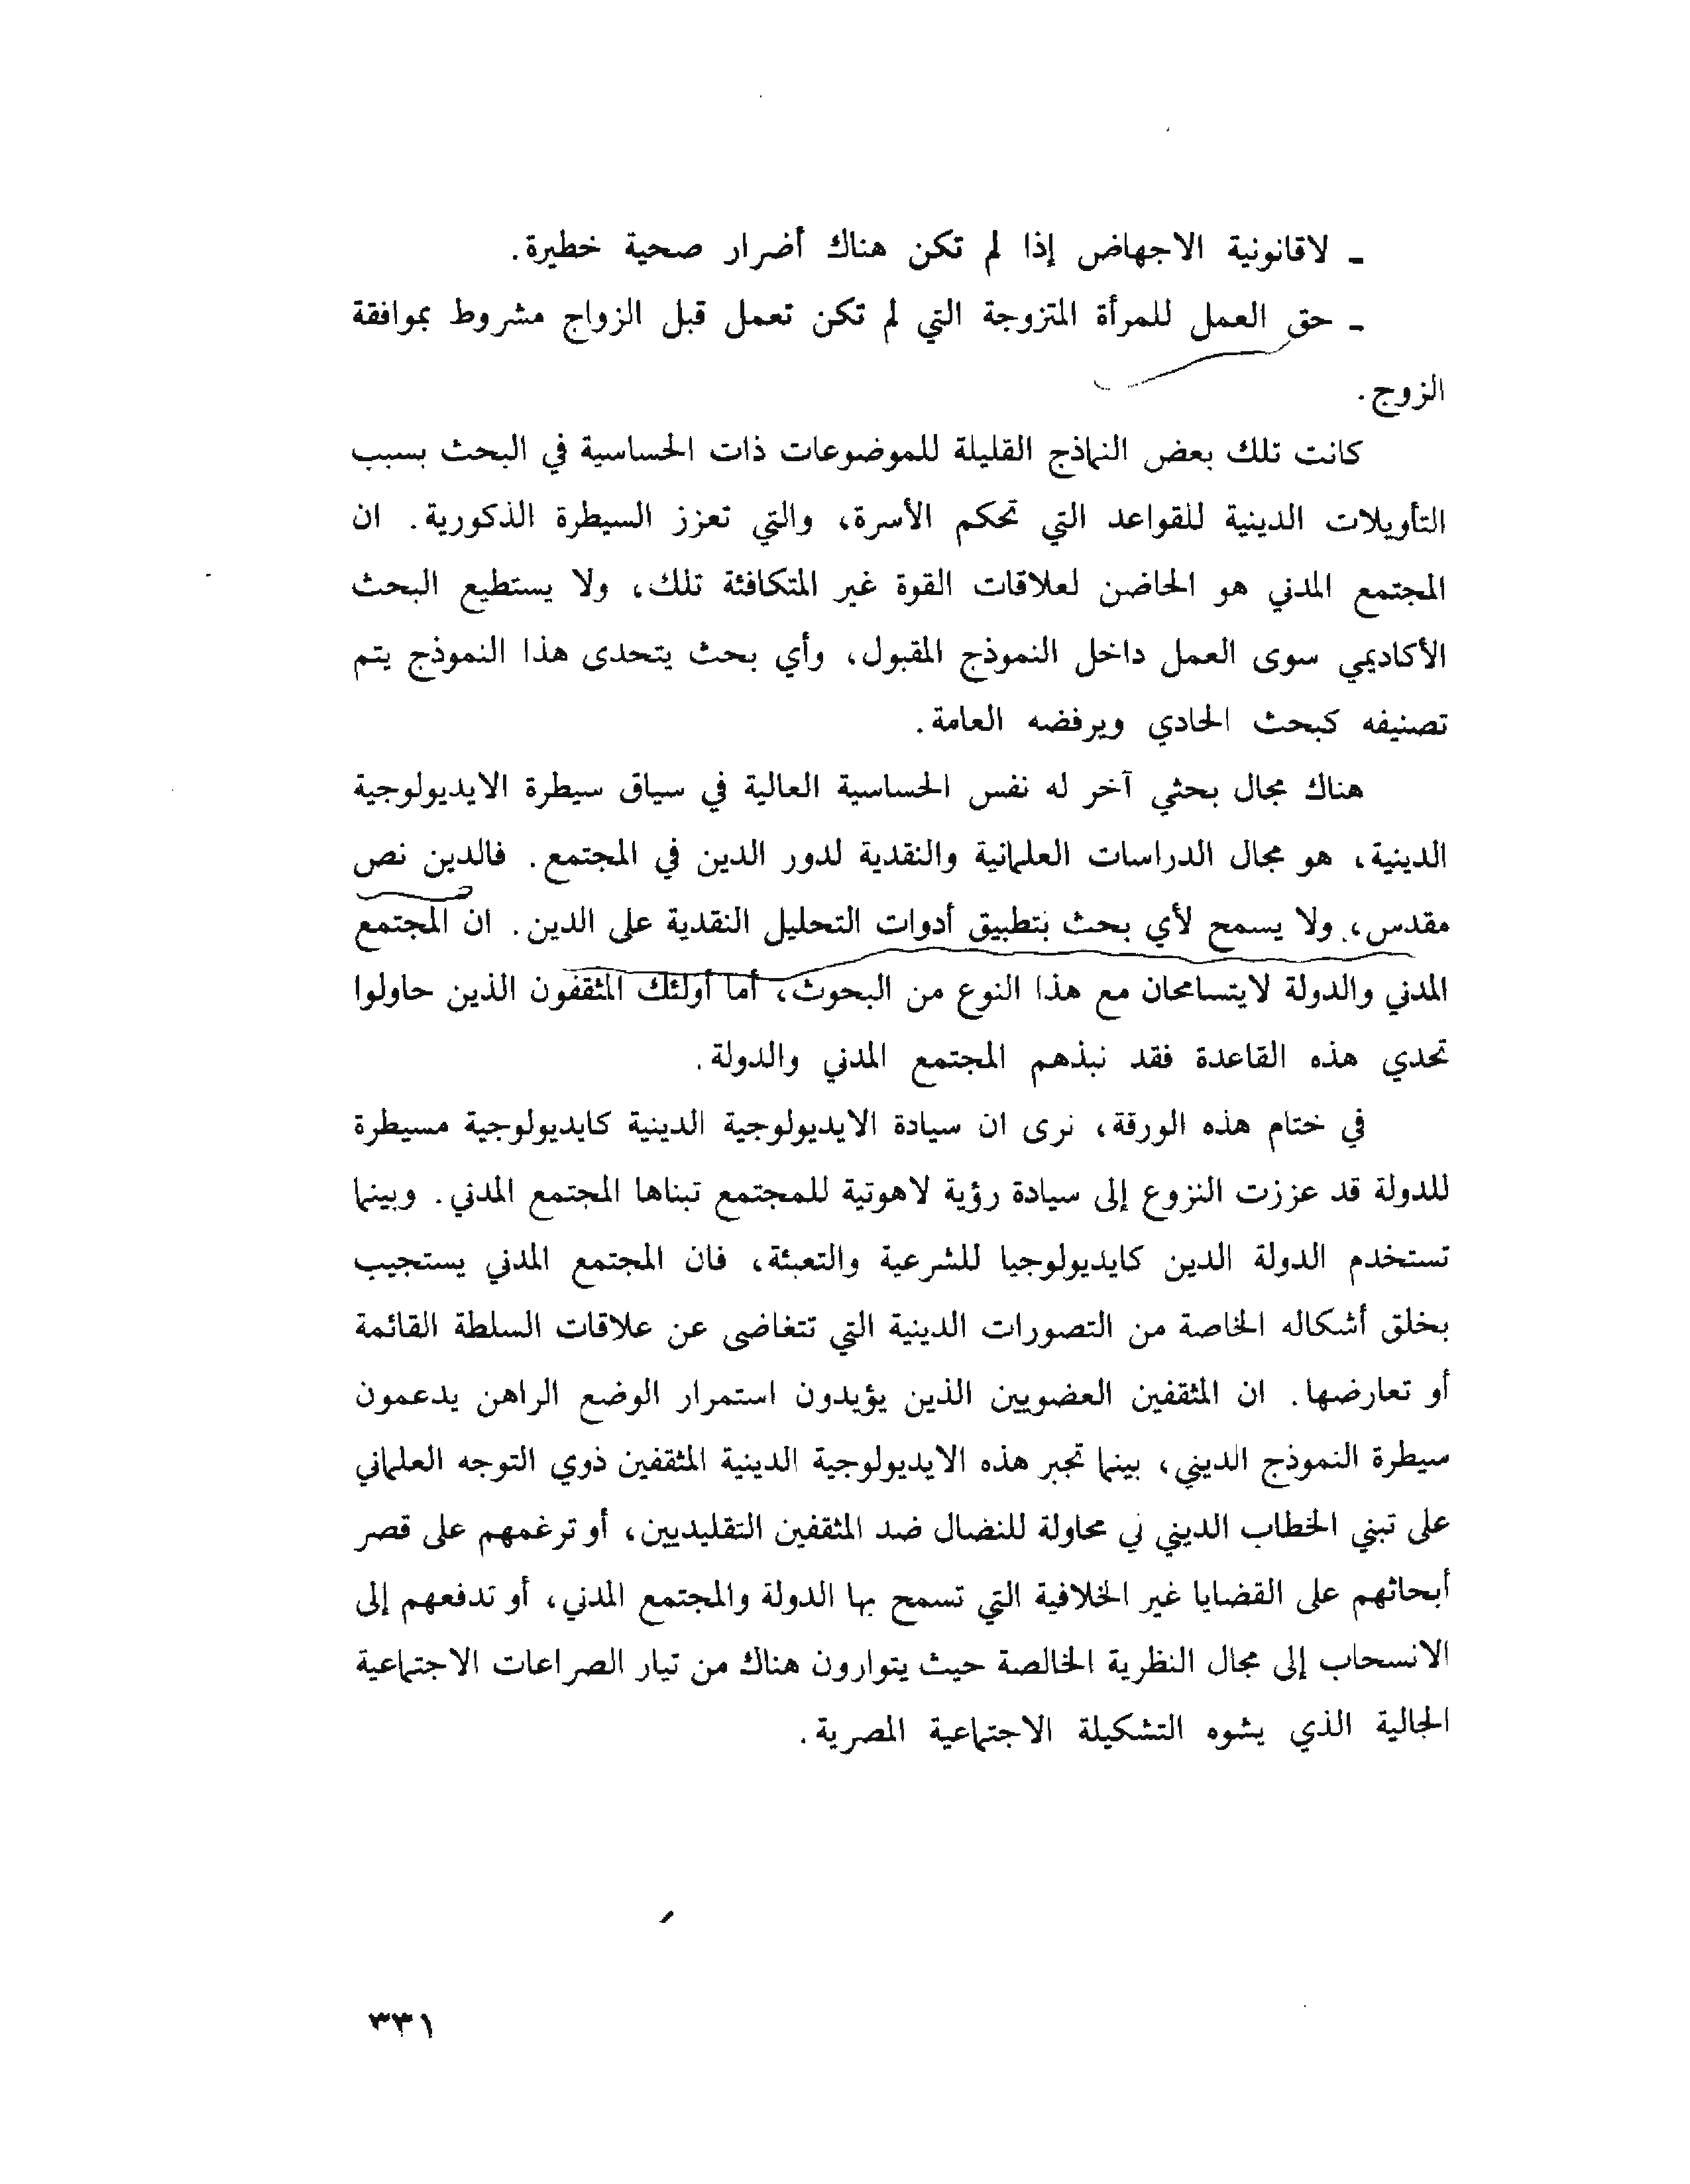 ـ لاقانونية الاجهاض إذا لم تكن هناك أضرار صحية خطيرة.
ـ حق العمل للمرأة المتزوجة التي لم تكن تعمل قبل الزواج مشروط بموافقة
الزوج.
كانت تلك بعض النماذج القليلة للموضوعات ذات الحساسية في البحث بسبب
التأويلات الدينية للقواعد التي تحكم الأسرة، والتي تعزز السيطرة الذكورية. ان
المجتمع المدني هو الحاضن لعلاقات القوة غير المتكافئة تلك، ولا يستطيع البحث
الأكاديمي سوى العمل داخل النموذج المقبول، وأي بحث يتحدى هذا النموذج يتم
تصنيفه كبحث الحادي ويرفضه العامة.
هناك مجال بحثي آخر له نفس الحساسية العالية في سياق سيطرة الايديولوجية
الدينية، هو مجال الدراسات العلمانية والنقدية لدور الدين في المجتمع. فالدين نص
مقدس، ولا يسمح لأي بحث بتطبيق أدوات التحليل النقدية على الدين. ان المجتمع
المدني والدولة لايتسامحان مع هذا النوع من البحوث، أما أولئك المثقفون الذين حاولوا
تحدي هذه القاعدة فقد نبذهم المجتمع المدني والدولة.
في ختام هذه الورقة، نرى ان سيادة الايديولوجية الدينية كايديولوجية مسيطرة
للدولة قد عززت النزوع إلى سيادة رؤية لاهوتية للمجتمع تبناها المجتمع المدني. وبينما
تستخدم الدولة الدين كايديولوجيا للشرعية والتعبئة، فان المجتمع المدني يستجيب
بخلق أشكاله الخاصة من التصورات الدينية التي تتغاضى عن علاقات السلطة القائمة
أو تعارضها. ان المثقفين العضويين الذين يؤيدون استمرار الوضع الراهن يدعمون
سيطرة النموذج الديني، بينما تجبر هذه الايديولوجية الدينية المثقفين ذوي التوجه العلماني
على تبني الخطاب الديني في محاولة للنضال ضد المثقفين التقليديين، أو ترغمهم على قصر
أبحاثهم على القضايا غير الخلافية التي تسمح بها الدولة والمجتمع المدني، أو تدفعهم إلى
الانسحاب إلى مجال النظرية الخالصة حيث يتوارون هناك من تيار الصراعات الاجتماعية
الجالية الذي يشوه التشكيلة الاجتماعية المصرية.
٣٣١